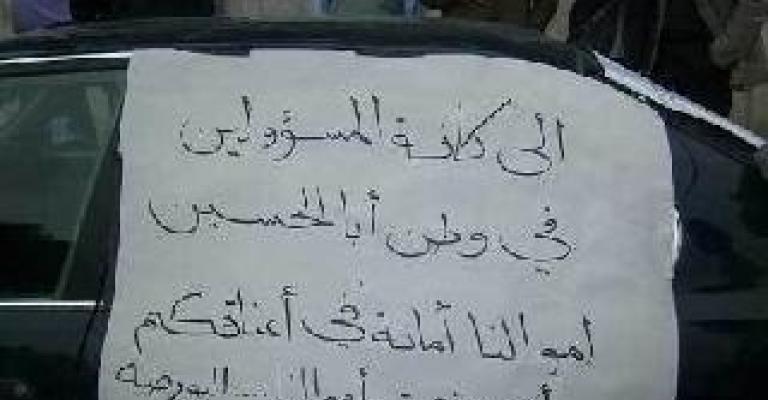 الى كافة المسؤولين
في وطن أبا الحسين
اموالنا أمانة في أعناقكم
البورصة